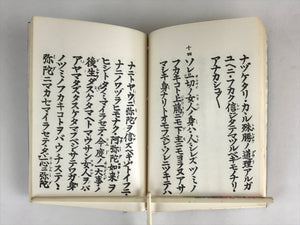 ナヅケタリ、カヽル殊勝ノ道理アルガ
ユヘニ、フカク信ジタテマツルベキモノナリ、
アナカシコ〱
十四
ソレ一切ノ女人ノ身ハ人シレズツミノ
フカキコト上臈ニモ下主ニモヨラヌアサ
マシキ身ナリトオモフベシソレニツキテハ
ナニトヤウニ弥陀ヲ信ズベキゾトイフニ
ナニノワヅラヒモナク阿弥陀如来ヲ
ヒシトタノミマイラセテ今度ノ一大事ノ
後生タスケタマヘトマウサン女人ヲバ
アヤマタズタスケタマフベシサテワガ身ノ
ツミノフカキコトヲバウチステヽ
弥陀ニマカセマイラセテタヾ一心ニ弥陀